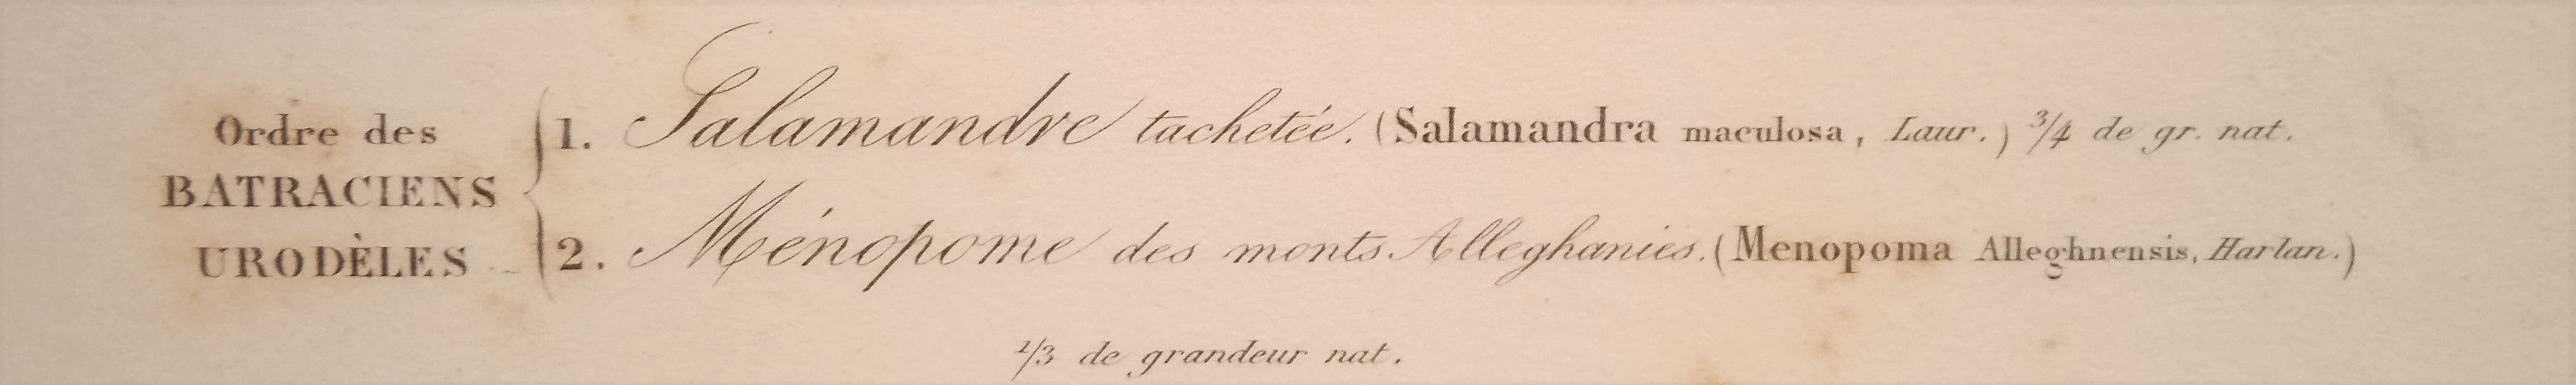 Ordre des
BATRACIENS
URODÈLES
1. Salamandre tachetée. (Salamandra maculosa, Laur.) 3/4 de gr. nat.
2. Ménopome des monts Alleghanies. (Menopoma Alleghnensis, Harlan.)
1/3 de grandeur nat.